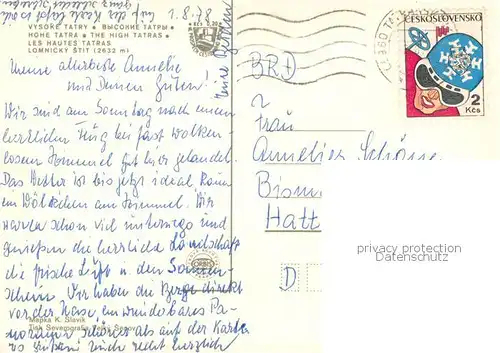 auf der Karte
1.8.78
VYSOKÉ TATRY • ВЫСОКИЕ ТАТРЫ
HOHE TATRA • THE HIGH TATRAS
LES HAUTES TATRAS
LOMNICKÝ ŠTÍT (2632 m)
Meine allerliebste Annelie
und Deinen Guten!
Wir sind am Sonntag nach einem
herrlichen Flug bei fast wolken
losem Himmel gut hier gelandet.
Das Wetter ist bis jetzt ideal, kaum
ein Wölkchen am Himmel. Wir
waren schon viel unterwegs und
genießen die herrliche Landschaft
die frische Luft u. den Sonnen-
schein. Wir haben die Berge direkt
vor der Nase, ein wunderbares Pa-
norama, schöner als auf der Karte
zu sehen! Euch recht herzlich
Mapka K. Slavík
Tisk Severografia
ORBIS
BRD
ČESKOSLOVENSKO
2
Kčs
Frau
Annelies Schöne
Bism
Hatt
D
privacy protection
Datenschutz